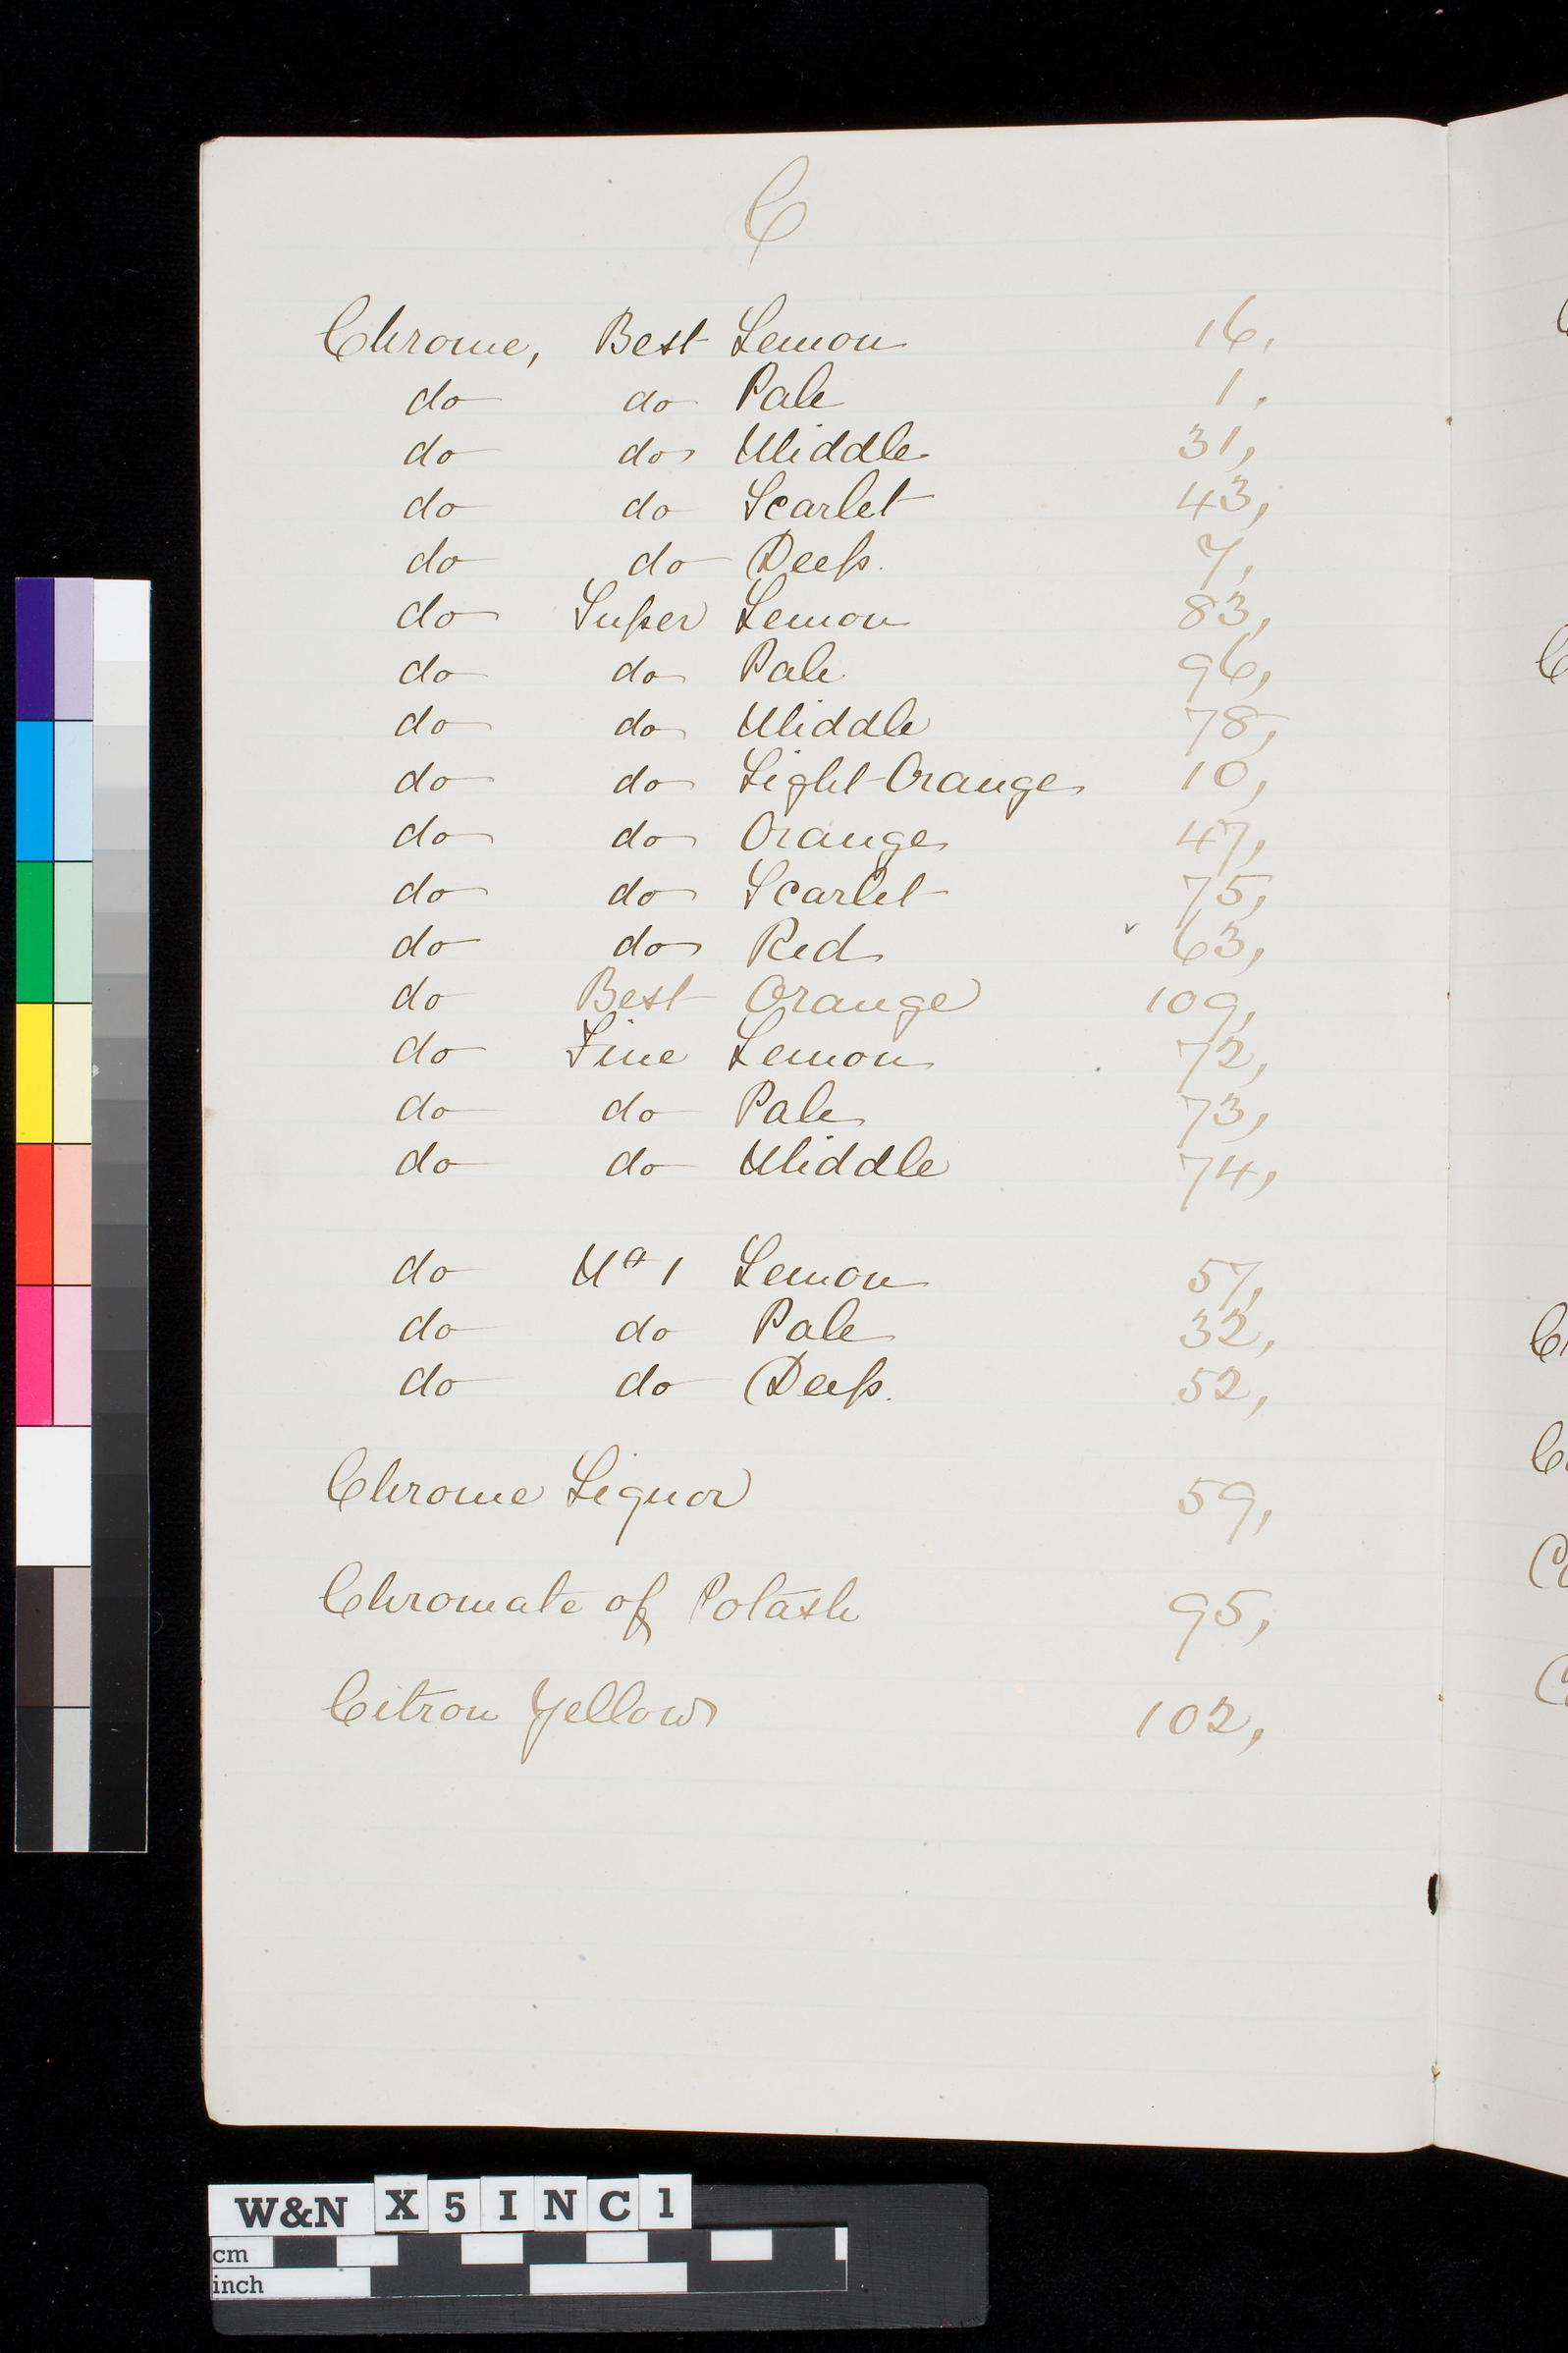 C
Chrome, Best Lemon 16,
do do Pale 1,
do do Middle 31,
do do Scarlet 43,
do do Deep. 7,
do Super Lemon 83,
do do Pale 96,
do do Middle 78,
do do Light Orange 10,
do do Orange 47,
do do Scarlet 75,
do do Red 63,
do Best Orange 109,
do Fine Lemon 72,
do do Pale 73,
do do Middle 74,
do No 1 Lemon 57,
do do Pale 32,
do do Deep. 52,
Chrome Liquor 59,
Chromate of Potash 95,
Citron Yellow 102,
W&N X 5 I N C 1
cm
inch